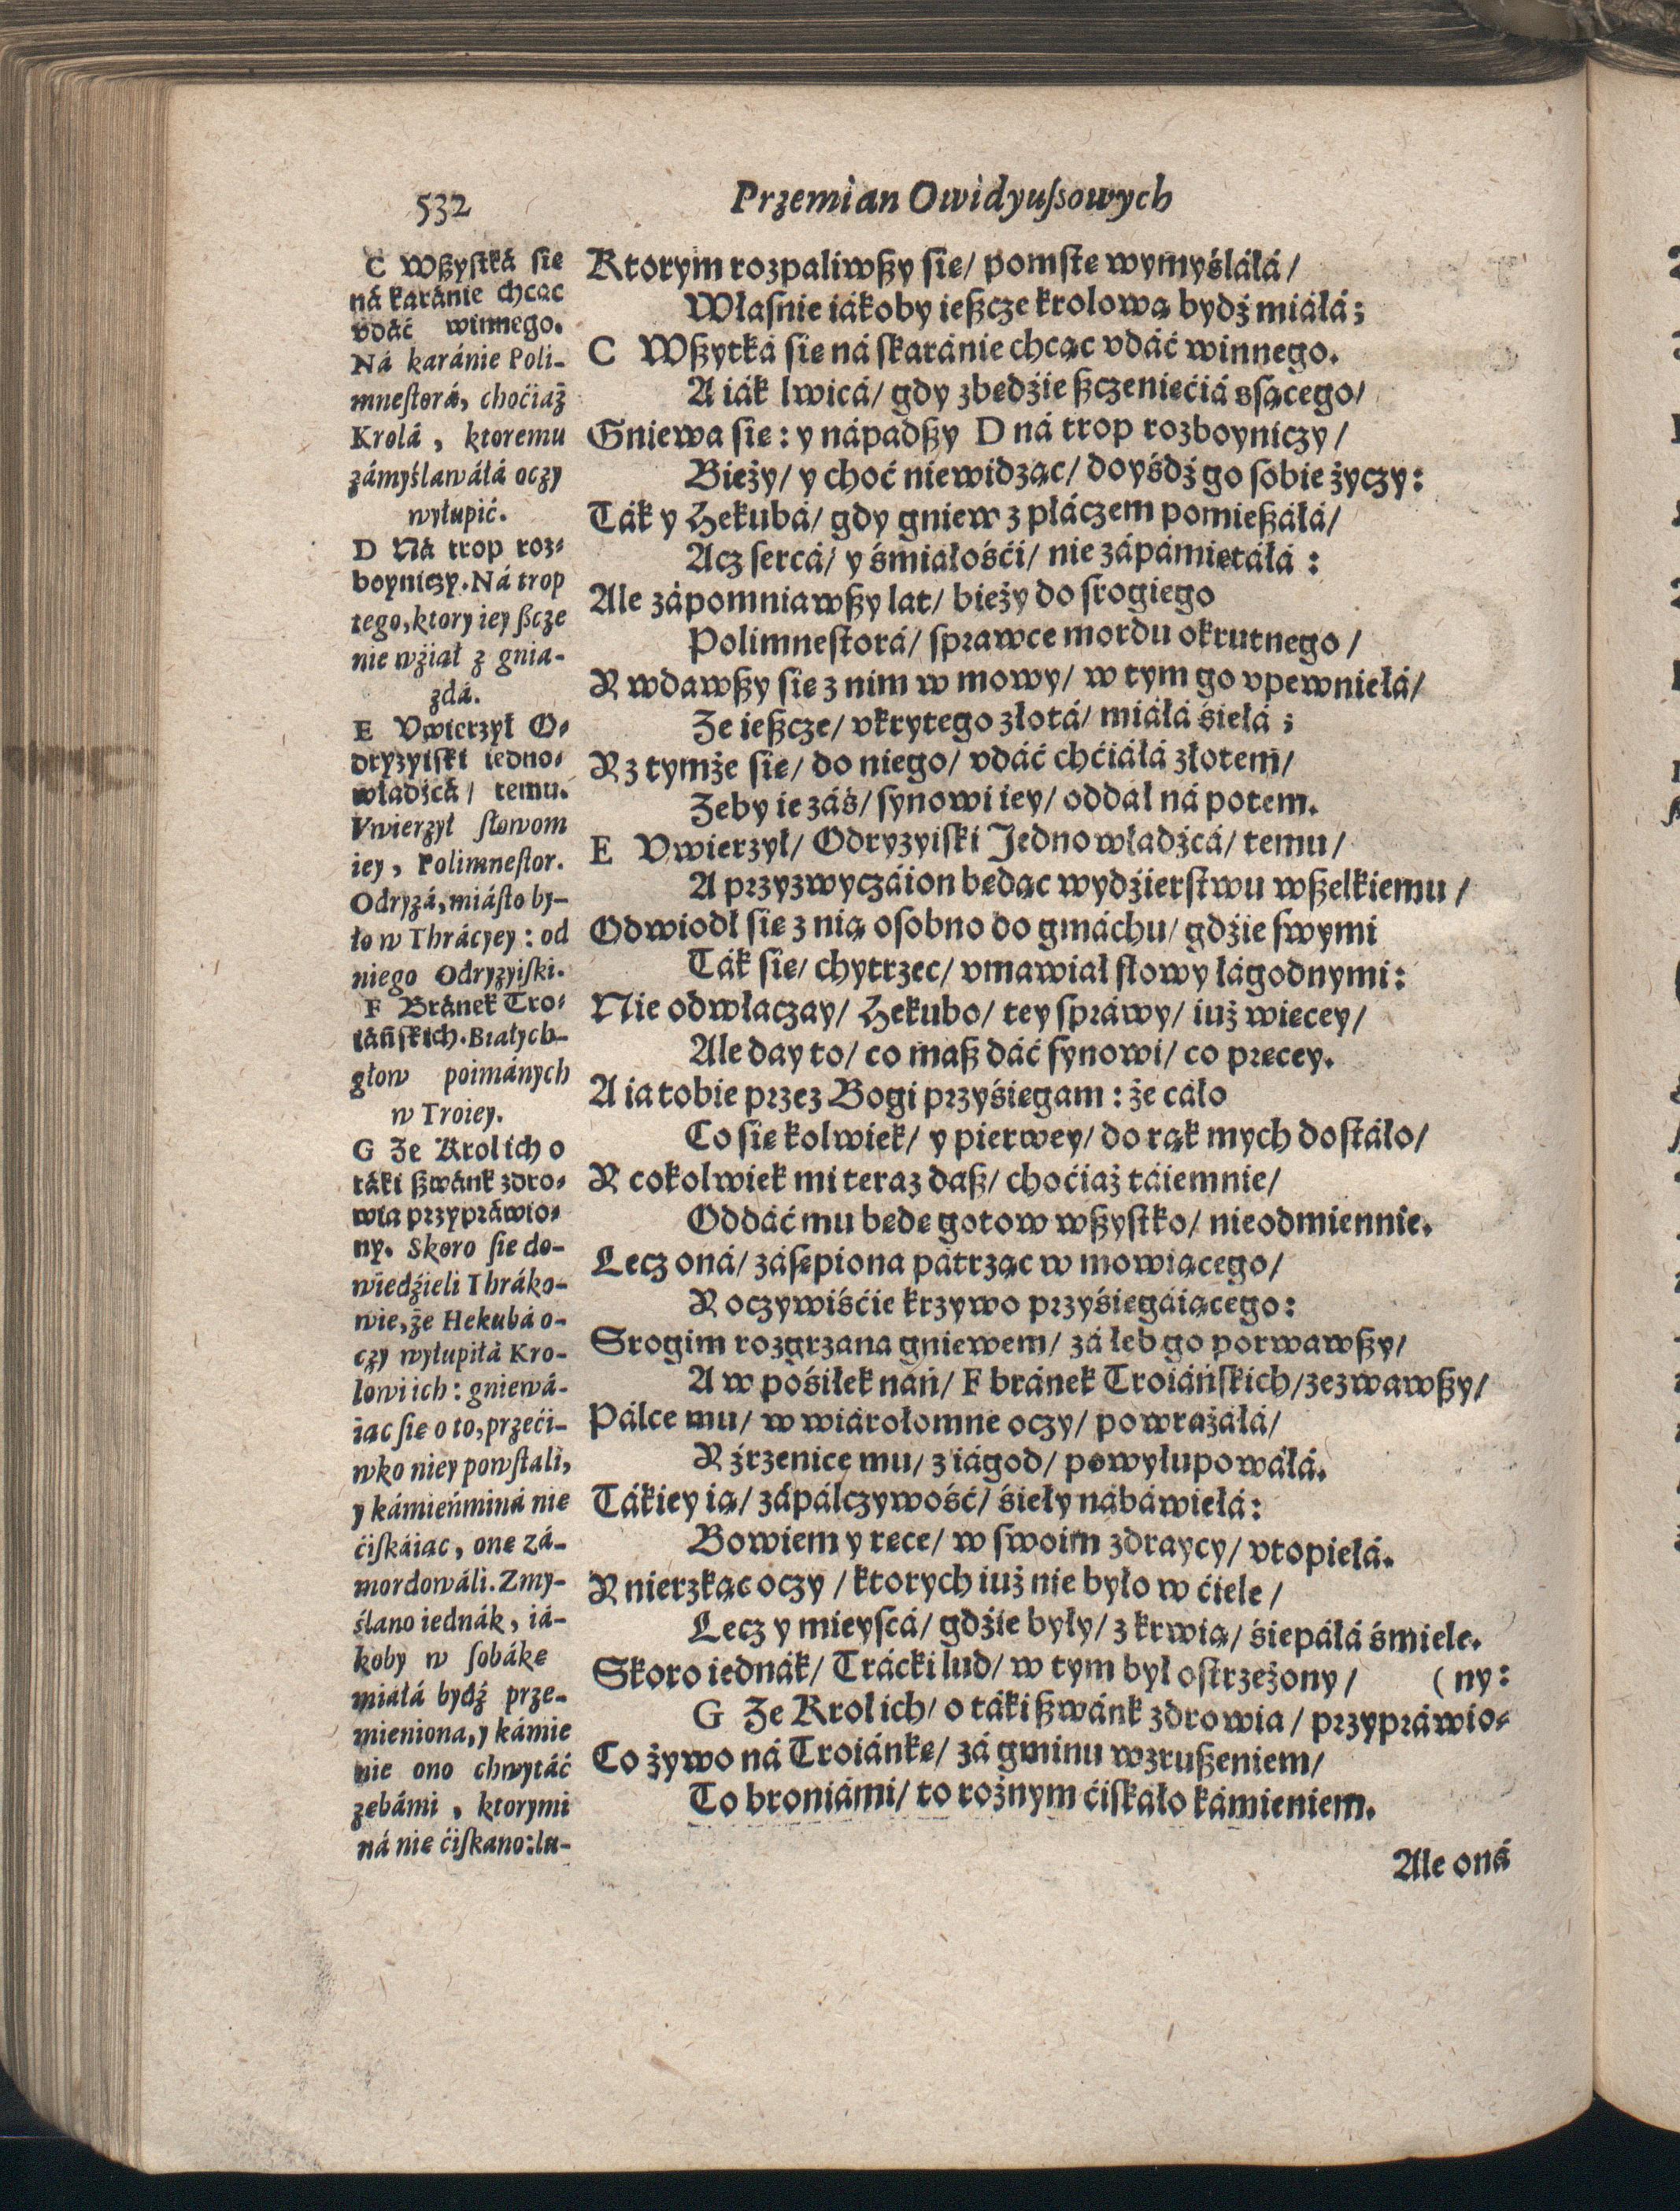 532
Przemian Owidyuſsowych
C Wßyſtká ſie
ná karánie chcąc
vdáć winnego.
Ná karánie Poli-
mneſtorá, choćiaż
Krolá, ktoremu
zámyślawáłá oczy
wyłupić.
D Ná trop roz-
boyniczy. Ná trop
tego, ktory iey ßcze
nie wźiął z gnia-
zdá.
E Vwierzył O-
dryzyiſki iedno-
władźcá / temu.
Vwierzył ſłowom
iey, Polimneſtor.
Odryzá, miáſto by-
ło w Thrácyey: od
niego Odryzyiſki.
F Bránek Tro-
iáńſkich. Białych-
głow poimánych
w Troiey.
G Ze Krol ich o
táki ßwánk zdro-
wia przypráwio-
ny. Skoro ſie do-
wiedźieli Thráko-
wie, że Hekubá o-
czy wyłupiłá Kro-
lowi ich: gniewá-
iąc ſie o to, przeći-
wko niey powſtali,
y kámieńmi ná nie
ćiſkáiąc, one zá-
mordowáli. Zmy-
ślano iednák, iá-
koby w ſobáke
miáłá bydź prze-
mieniona, y kámie
nie ono chwytáć
zębámi, ktorymi
ná nie ćiſkano: lu-
Ktorym rozpaliwßy ſie/ pomſte wymyśláłá/
Właſnie iákoby ießcze krolową bydź miáłá;
C Wßytká ſie ná ſkaránie chcąc vdáć winnego.
A iák lwicá/ gdy zbędźie ßczenięćiá sſącego/
Gniewa ſie: y nápadßy D ná trop rozboyniczy/
Bieży/ y choć niewidząc/ doyśdź go ſobie życzy:
Ták y Hekubá/ gdy gniew z płáczem pomießáłá/
Acz ſercá/ y śmiałośći/ nie zápámiętáłá:
Ale zápomniawßy lat/ bieży do ſrogiego
Polimneſtorá/ ſprawce mordu okrutnego/
Y wdawßy ſie z nim w mowy/ w tym go vpewniełá/
Ze ießcze/ vkrytego złotá/ miáłá śiełá;
Y z tymże ſie/ do niego/ vdáć chćiáłá złotem/
Zeby ie záś/ ſynowi iey/ oddał ná potem.
E Vwierzył/ Odryzyiſki Jednowładźcá/ temu/
A przyzwyczáion będąc wydźierſtwu wßelkiemu/
Odwiodł ſie z nią oſobno do gmáchu/ gdźie ſwymi
Ták ſie/ chytrzec/ vmawiał ſłowy łágodnymi:
Nie odwłaczay/ Hekubo/ tey ſpráwy/ iuż wiecey/
Ale day to/ co maß dáć ſynowi/ co precey.
A ia tobie przez Bogi przyśięgam: że cáło
Co ſię kolwiek/ y pierwey/ do rąk mych doſtáło/
Y cokolwiek mi teraz daß/ choćiaż táiemnie/
Oddáć mu bede gotow wßyſtko/ nieodmiennie.
Lecz oná/ záſępiona pátrząc w mowiącego/
Y oczywiśćie krzywo przyśięgáiącego:
Srogim rozgrzana gniewem/ zá łeb go porwawßy/
A w pośiłek nań/ F bránek Troiáńſkich/ zezwawßy/
Pálce mu/ w wiárołomne oczy/ powrażáłá/
Y źrzenice mu/ z iágod/ powyłupowáłá.
Tákiey ią/ zápálczywość/ śieły nábáwiełá:
Bowiem y ręce/ w ſwoim zdraycy/ vtopiełá.
Y nierzkąc oczy/ ktorych iuż nie było w ćiele/
Lecz y mieyſcá/ gdźie były/ z krwią/ śiepáłá śmiele.
Skoro iednák/ Trácki lud/ w tym był oſtrzeżony/ (ny:
G Ze Krol ich/ o táki ßwánk zdrowia/ przypráwio-
Co żywo ná Troiánkę/ zá gminu wzrußeniem/
To broniámi/ to rożnym ćiſkáło kámieniem.
Ale oná